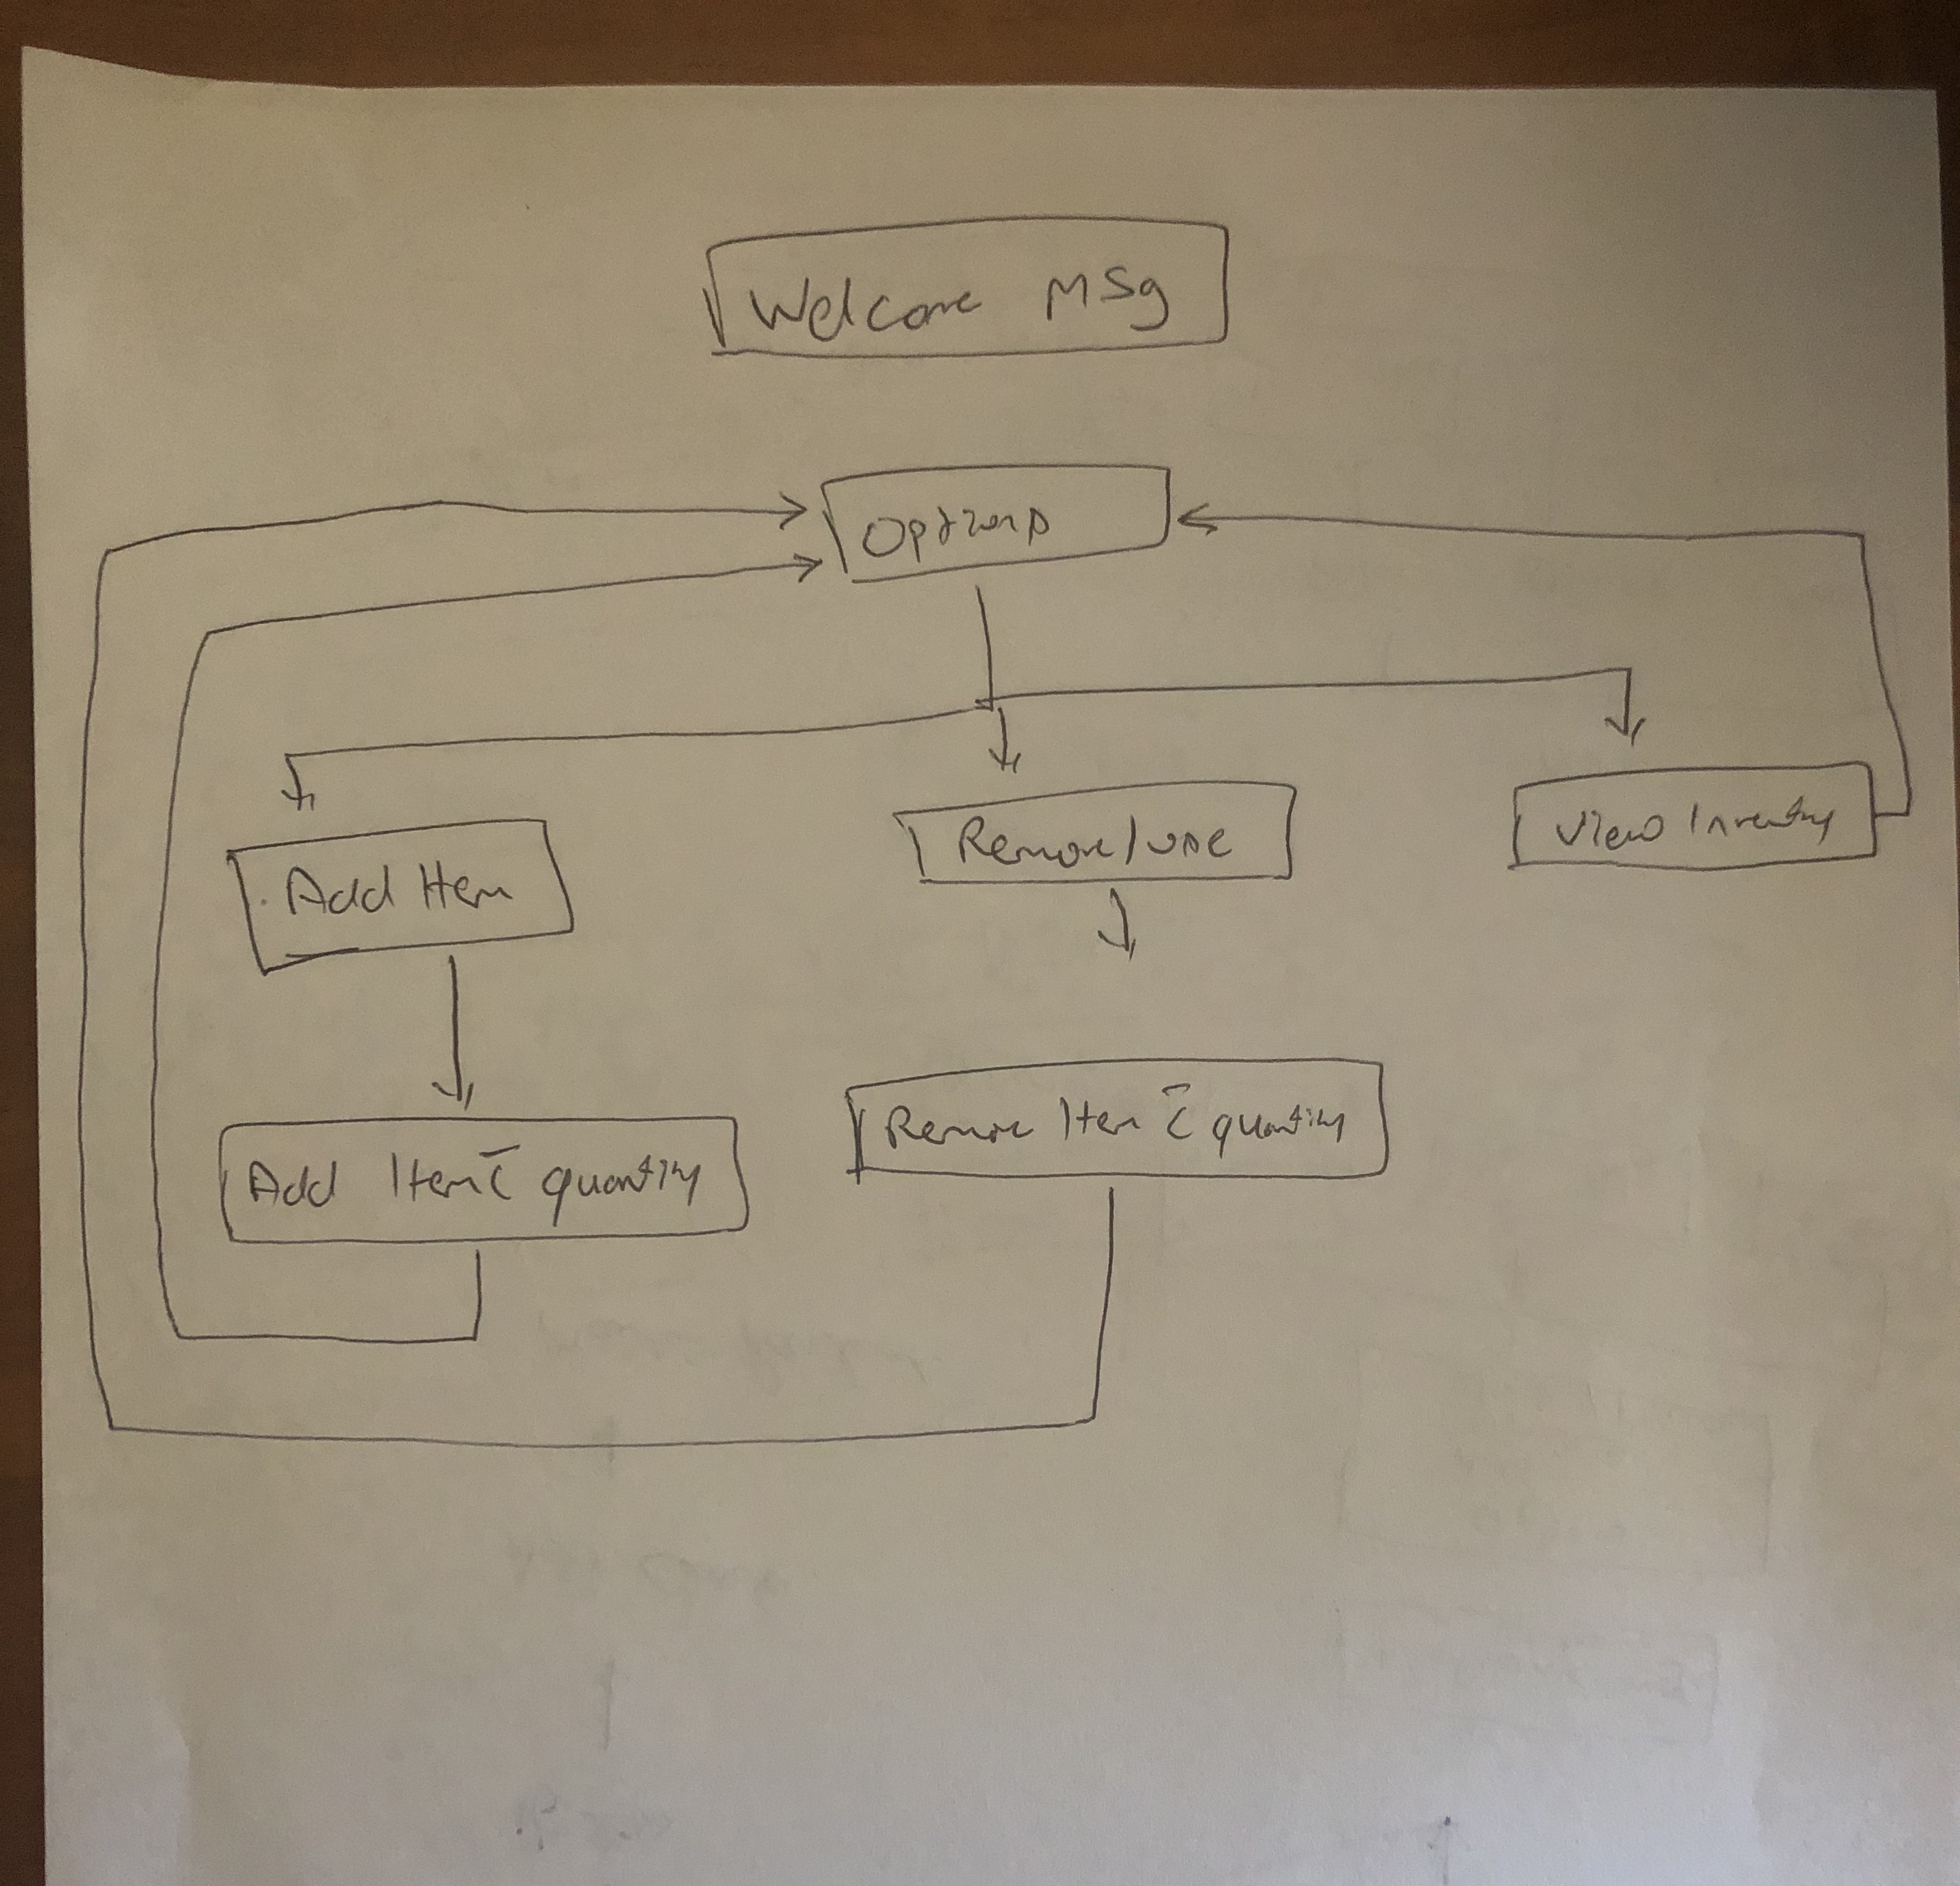 Welcome Msg
Options
Add Item
Remove/use
View Inventory
Add Item c̄ quantity
Remove Item c̄ quantity